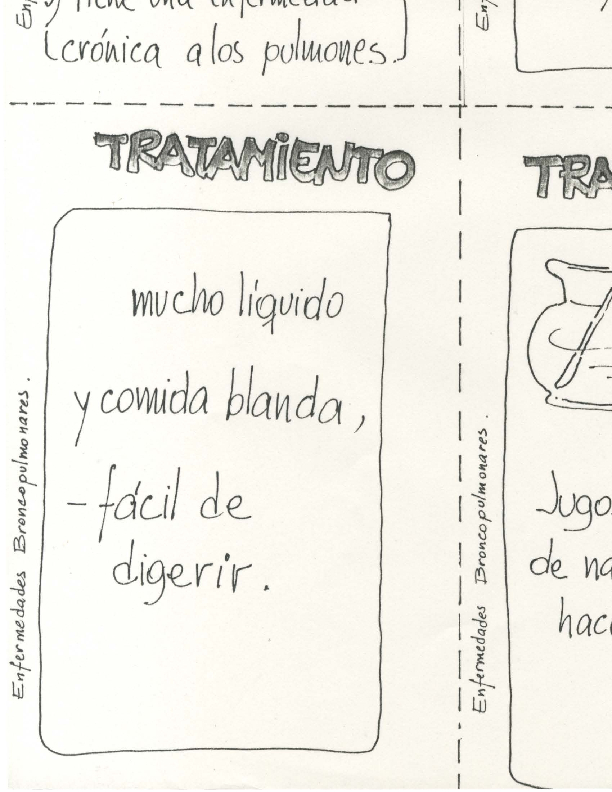 y tiene una enfermedad
crónica a los pulmones.
TRATAMIENTO
mucho líquido
y comida blanda,
- fácil de
digerir.
Enfermedades Broncopulmonares.
Jugo
de na
hac
Enfermedades Broncopulmonares.